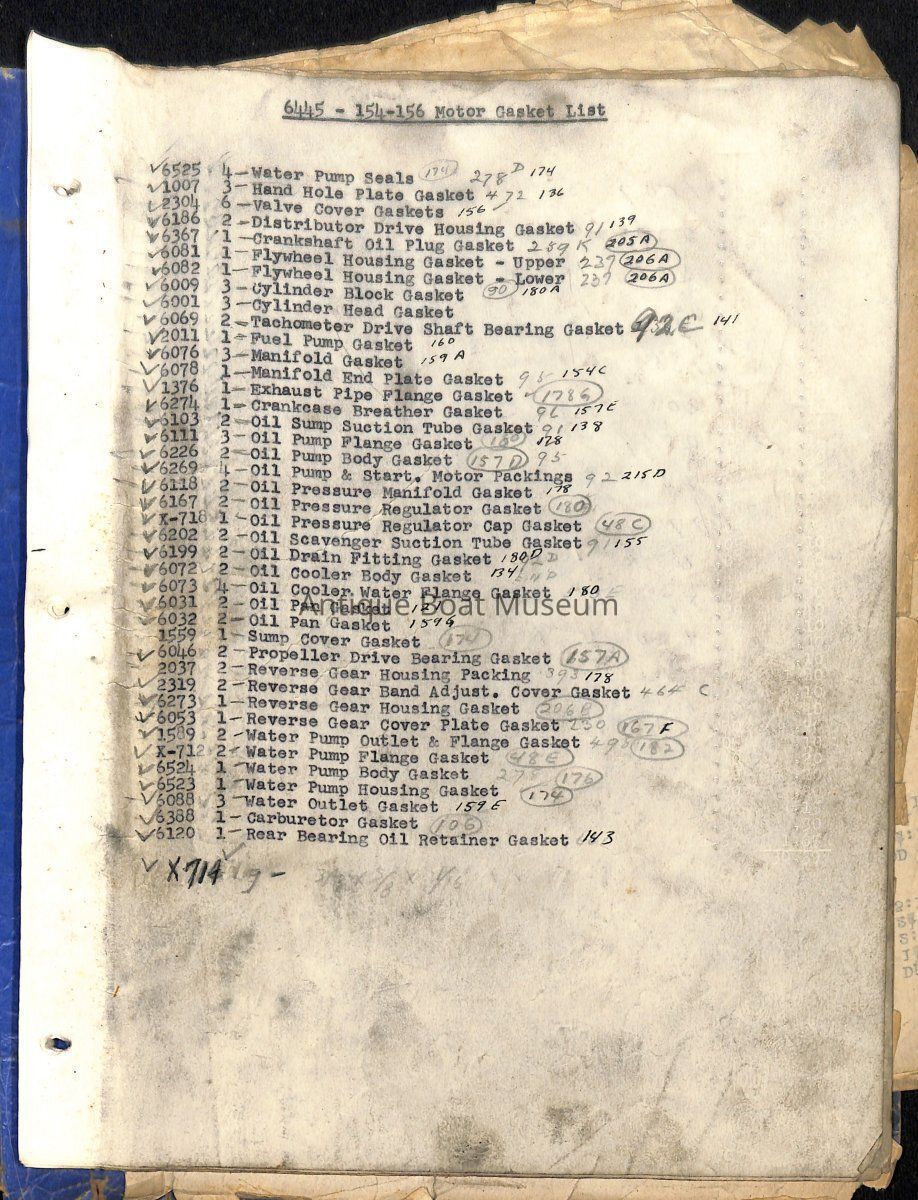 6445 - 154-156 Motor Gasket List
✓6525 4-Water Pump Seals (174) 278D 174
✓1007 3-Hand Hole Plate Gasket 472 136
✓2304 6-Valve Cover Gaskets 156
✓6186 2-Distributor Drive Housing Gasket 91 139
✓6367 1-Crankshaft Oil Plug Gasket 289K 205A
✓6081 1-Flywheel Housing Gasket - Upper 237 206A
✓6082 1-Flywheel Housing Gasket - Lower 237 206A
✓6009 3-Cylinder Block Gasket 90 180A
✓6001 3-Cylinder Head Gasket
✓6069 2-Tachometer Drive Shaft Bearing Gasket 92C 141
✓2011 1-Fuel Pump Gasket 160
✓6076 3-Manifold Gasket 159A
✓6078 1-Manifold End Plate Gasket 154C
✓1376 1-Exhaust Pipe Flange Gasket
✓6274 1-Crankcase Breather Gasket 157E
✓6103 2-Oil Sump Suction Tube Gasket 91 138
✓6111 3-Oil Pump Flange Gasket 178
✓6226 2-Oil Pump Body Gasket (157D) 95
✓6269 4-Oil Pump & Start. Motor Packings 92 215D
✓6118 2-Oil Pressure Manifold Gasket 178
✓6167 2-Oil Pressure Regulator Gasket (180)
✓X-718 1-Oil Pressure Regulator Cap Gasket (48C)
✓6202 2-Oil Scavenger Suction Tube Gasket 91 155
✓6199 2-Oil Drain Fitting Gasket 180D
✓6072 2-Oil Cooler Body Gasket 134
✓6073 4-Oil Cooler Water Flange Gasket 180
✓6031 2-Oil Pan Gasket 121
Antique Boat Museum
✓6032 2-Oil Pan Gasket 159G
1559 1-Sump Cover Gasket (174)
✓6046 2-Propeller Drive Bearing Gasket (157A)
2037 2-Reverse Gear Housing Packing 393 178
✓2319 2-Reverse Gear Band Adjust. Cover Gasket 464 C
✓6273 1-Reverse Gear Housing Gasket (206B)
✓6053 1-Reverse Gear Cover Plate Gasket (167F)
✓1589 2-Water Pump Outlet & Flange Gasket (182)
✓X-712 2-Water Pump Flange Gasket (48E)
✓6524 1-Water Pump Body Gasket 278 (176)
✓6523 1-Water Pump Housing Gasket (174)
✓6088 3-Water Outlet Gasket 159E
✓6388 1-Carburetor Gasket (106)
✓6120 1-Rear Bearing Oil Retainer Gasket 143
✓ X714